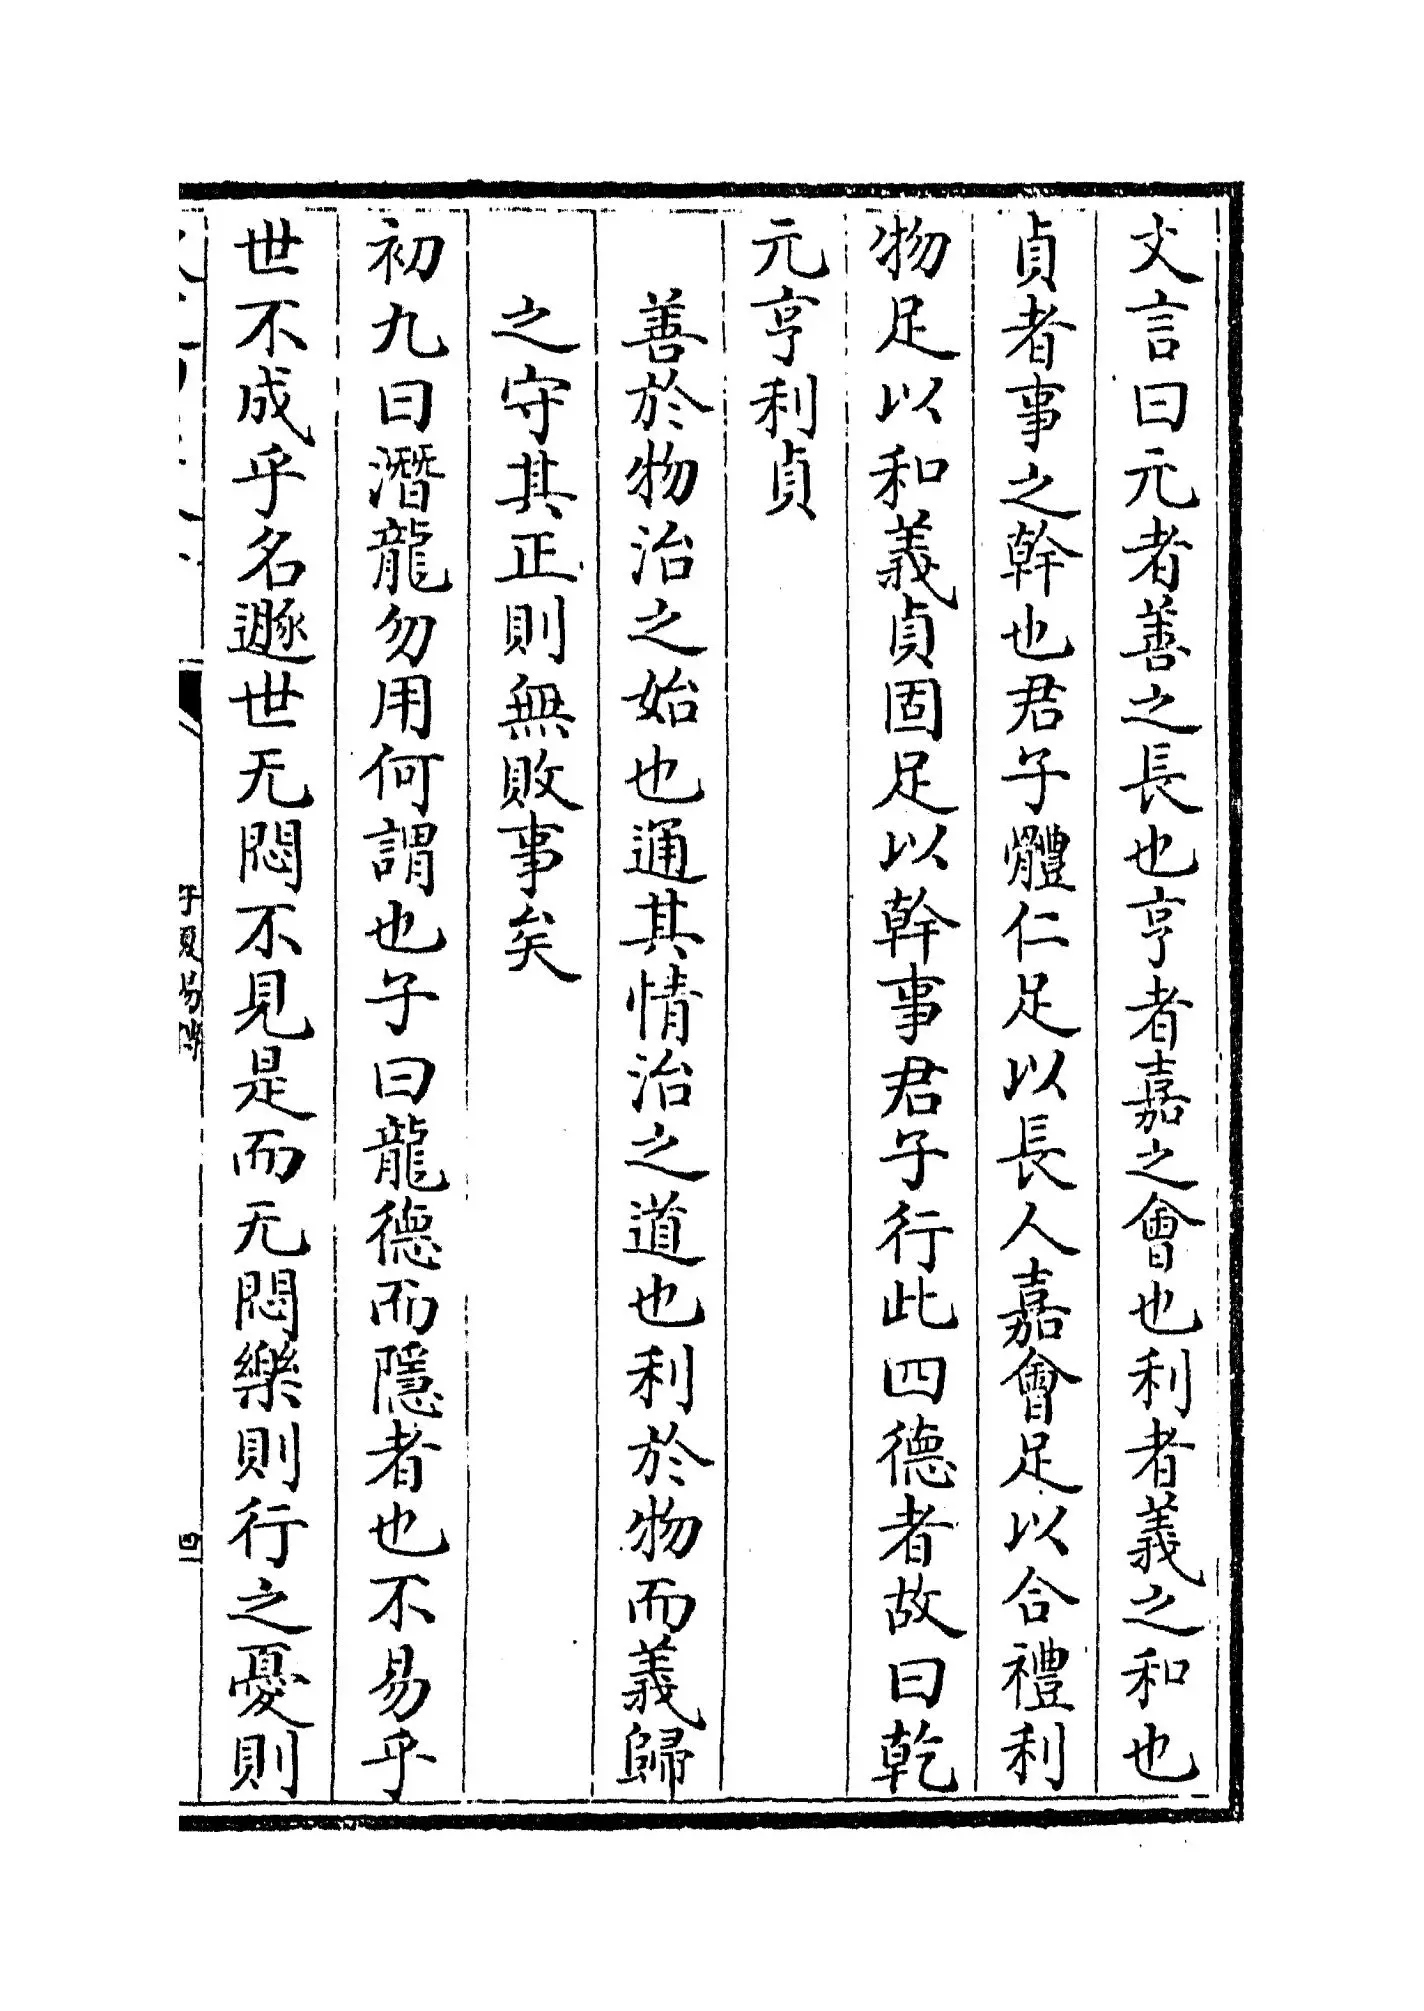 文言曰元者善之長也亨者嘉之會也利者義之和也
貞者事之幹也君子體仁足以長人嘉會足以合禮利
物足以和義貞固足以幹事君子行此四德者故曰乾
元亨利貞
善於物治之始也通其情治之道也利於物而義歸
之守其正則無敗事矣
初九曰潛龍勿用何謂也子曰龍德而隱者也不易乎
世不成乎名遯世无悶不見是而无悶樂則行之憂則
子夏易傳
四